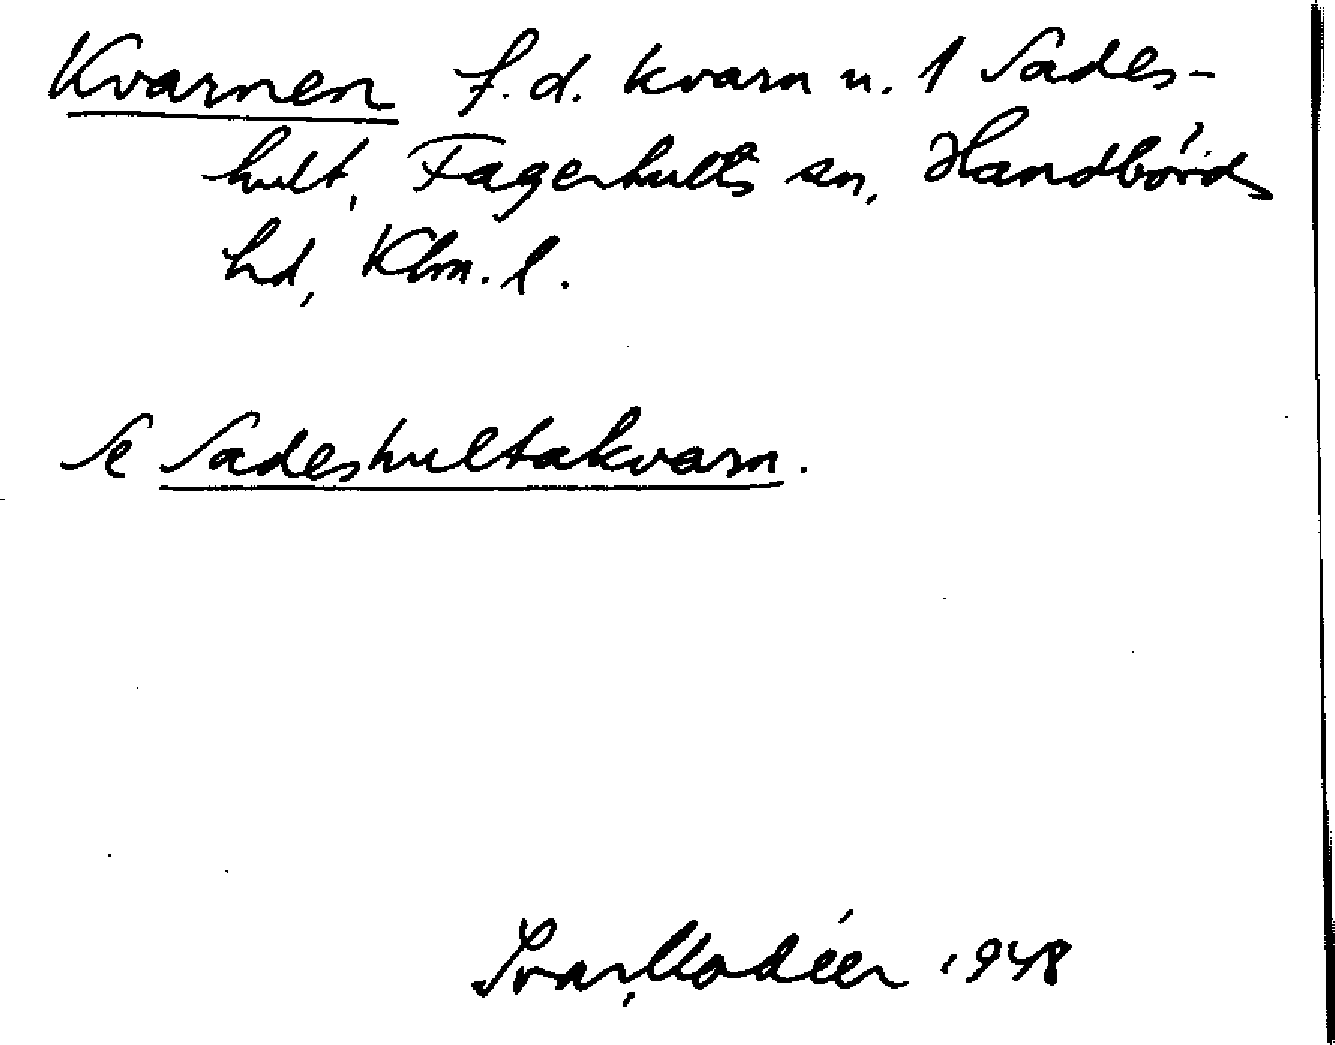 Kvarnen f.d. kvarn u. 1 Sades-
hult, Fagerhults sn, Handbörds
hd, Klm. l.
Se Sadeshultakvarn.
Ivar Modéer 1948